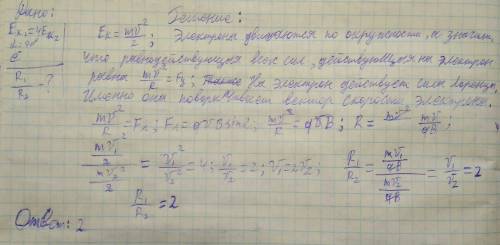 Дано: Решение:
Eк₁=4Eк₂
α=90°
e⁻
R₁/R₂ - ?
Eк = mv²/2; Электроны движутся по окружности, а значит,
что равнодействующая всех сил, действующих на электрон
равна mv²/R = Fл; На электрон действует сила Лоренца,
Именно она поворачивает вектор скорости электрона.
mv²/R = Fл; Fл = qvB sinα; mv²/R = qvB; R = mv/qB;
(mv₁²/2)/(mv₂²/2) = v₁²/v₂² = 4; v₁/v₂ = 2; v₁ = 2v₂; R₁/R₂ = (mv₁/qB)/(mv₂/qB) = v₁/v₂ = 2
R₁/R₂ = 2
Ответ: 2